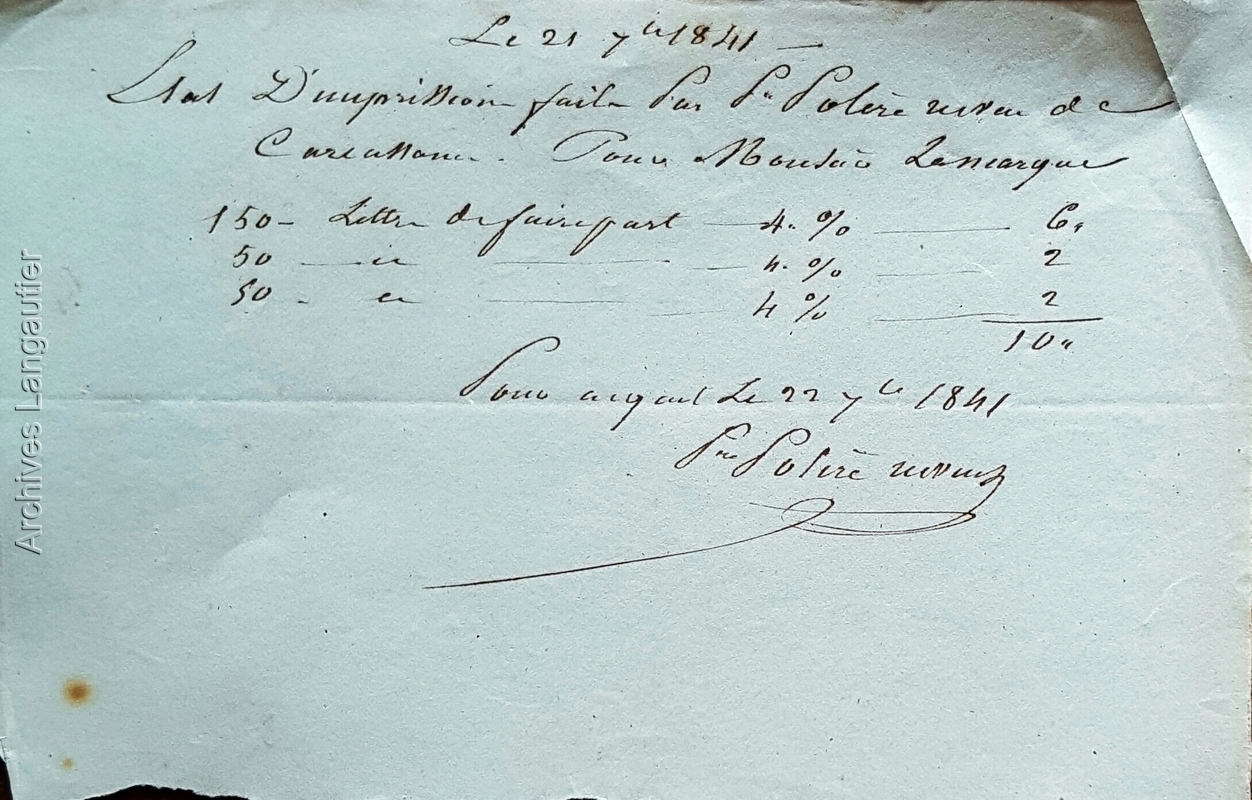 Le 21 7bre 1841 —
Etat D'impression faite Par Pre Polère neveu de
Carcassonne. Pour Monsieur Lamarque
150 — Lettre de faire part — 4. % — 6"
50 — id — 4. % — 2
50 - id — 4 % — 2
10"
Pour acquit Le 22 7bre 1841
Pre Polère neveu
Archives Langautier